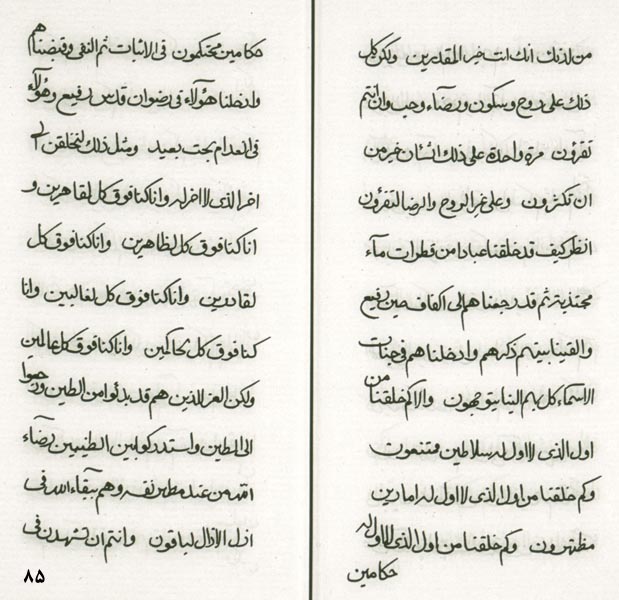 من لدنك انك انت خير المقدرين ولكن كل
ذلك على روح وسكون ورضآء وحب وان انتم
تقرؤن مرة واحدة على ذلك الشان خير من
ان تكثرون وعلى غير الروح والرضا لتقرؤن
انظر كيف قد خلقنا عبادا من قطرات مآء
ثم قد رجعناهم الى اكفاف طين رفيع
والقينا بينهم ذكرهم وادخلناهم فى جنات
الاسمآء كل بهم الينا يتوجهون والا كم خلقنا من
اول الذى لا اول له سلاطين متنعوت
وكم خلقنا من اول الذى لا اول له امارين
مظتهرون وكم خلقنا من اول الذى لا اول له
حكامين
حكامين محتكمون فى الاثبات ثم النفى وقبضناهم
وادخلنا هؤلآء فى رضوان قدس رفيع وهؤلآء
فى انعدام بحت بعيد ومثل ذلك لنخلقن الى
اخر الذى لا اخر له وانا كنا فوق كل لقاهرين و
انا كنا فوق كل لظاهرين وانا كنا فوق كل
لقادرين وانا كنا فوق كل لغالبين وانا
كنا فوق كل لحاكمين وانا كنا فوق كل عالمين
ولكن العز للذين هم قد بدئوا من الطين ورجعوا
الى الطين واستدركوا بين الطينين رضآء
الله من عند مظهر نفسه وهم ببقآء الله فى
ازل الازال لباقون وانتم ان تشهدن فى
٨٥